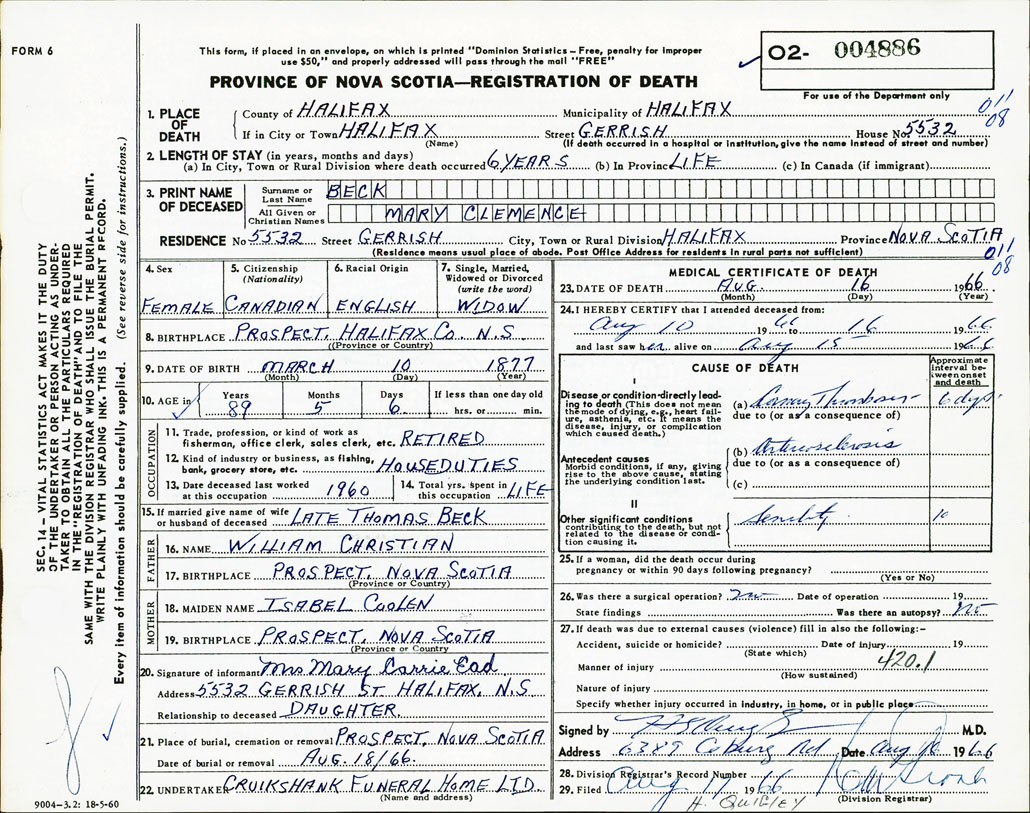 FORM 6
This form, if placed in an envelope, on which is printed "Dominion Statistics – Free, penalty for improper
use $50," and properly addressed will pass through the mail "FREE"
PROVINCE OF NOVA SCOTIA—REGISTRATION OF DEATH
O2- 004886
For use of the Department only
011
08
1. PLACE OF DEATH
County of HALIFAX Municipality of HALIFAX
If in City or Town HALIFAX Street GERRISH House No 5532
(Name) (If death occurred in a hospital or institution, give the name instead of street and number)
2. LENGTH OF STAY (in years, months and days)
(a) In City, Town or Rural Division where death occurred 6 YEARS (b) In Province LIFE (c) In Canada (if immigrant)
3. PRINT NAME OF DECEASED
Surname or Last Name BECK
All Given or Christian Names MARY CLEMENCE
RESIDENCE No 5532 Street GERRISH City, Town or Rural Division HALIFAX Province NOVA SCOTIA
(Residence means usual place of abode. Post Office Address for residents in rural parts not sufficient)
011
08
4. Sex
FEMALE
5. Citizenship
(Nationality)
CANADIAN
6. Racial Origin
ENGLISH
7. Single, Married,
Widowed or Divorced
(write the word)
WIDOW
8. BIRTHPLACE PROSPECT, HALIFAX CO. N.S
((Province or Country)
9. DATE OF BIRTH MARCH 10 1877
(Month) (Day) (Year)
10. AGE in
Years Months Days If less than one day old
89 5 6 hrs. or min.
OCCUPATION
11. Trade, profession, or kind of work as
fisherman, office clerk, sales clerk, etc. RETIRED
12. Kind of industry or business, as fishing,
bank, grocery store, etc. HOUSEDUTIES
13. Date deceased last worked
at this occupation 1960
14. Total yrs. spent in
this occupation LIFE
15. If married give name of wife
or husband of deceased LATE THOMAS BECK
FATHER
16. NAME WILLIAM CHRISTIAN
17. BIRTHPLACE PROSPECT, NOVA SCOTIA
(Province or Country)
MOTHER
18. MAIDEN NAME ISABEL COOLEN
19. BIRTHPLACE PROSPECT, NOVA SCOTIA
(Province or Country
20. Signature of informant Mrs Mary Carrie Ead
Address 5532 GERRISH ST HALIFAX, N.S
Relationship to deceased DAUGHTER.
21. Place of burial, cremation or removal PROSPECT, NOVA SCOTIA
Date of burial or removal AUG. 18/66.
22. UNDERTAKER CRUIKSHANK FUNERAL HOME LTD.
(Name and address)
MEDICAL CERTIFICATE OF DEATH
23. DATE OF DEATH AUG. 16 1966
(Month) (Day) (Year)
24. I HEREBY CERTIFY that I attended deceased from:
Aug 10 1966 to 16 1966
and last saw her alive on Aug 15th 1966
CAUSE OF DEATH
Approximate
interval be-
tween onset
and death
I
Disease or condition directly lead-
ing to death (This does not mean
the mode of dying, e.g., heart fail-
ure, asthenia, etc. It means the
disease, injury, or complication
which caused death.)
(a) Thrombosis 6 days
due to (or as a consequence of)
Antecedent causes
Morbid conditions, if any, giving
rise to the above cause, stating
the underlying condition last.
(b) Arteriosclerosis
due to (or as a consequence of)
(c)
II
Other significant conditions
contributing to the death, but not
related to the disease or condi-
tion causing it.
Senility 10
25. If a woman, did the death occur during
pregnancy or within 90 days following pregnancy?
(Yes or No)
26. Was there a surgical operation? no Date of operation 19
State findings Was there an autopsy? no
27. If death was due to external causes (violence) fill in also the following:-
Accident, suicide or homicide? Date of injury 19
(State which)
Manner of injury 420.1
(How sustained)
Nature of injury
Specify whether injury occurred in industry, in home, or in public place
Signed by M.D.
Address 6389 Coburg Rd Date Aug 16 1966
28. Division Registrar's Record Number
29. Filed Aug 17 1966
(Division Registrar)
H. QUIGLEY
SEC. 14 – VITAL STATISTICS ACT MAKES IT THE DUTY
OF THE UNDERTAKER OR PERSON ACTING AS UNDER-
TAKER TO OBTAIN ALL THE PARTICULARS REQUIRED
IN THE "REGISTRATION OF DEATH" AND TO FILE THE
SAME WITH THE DIVISION REGISTRAR WHO SHALL ISSUE THE BURIAL PERMIT.
WRITE PLAINLY WITH UNFADING INK. THIS IS A PERMANENT RECORD.
Every item of information should be carefully supplied. (See reverse side for instructions.)
9004-3.2: 18-5-60